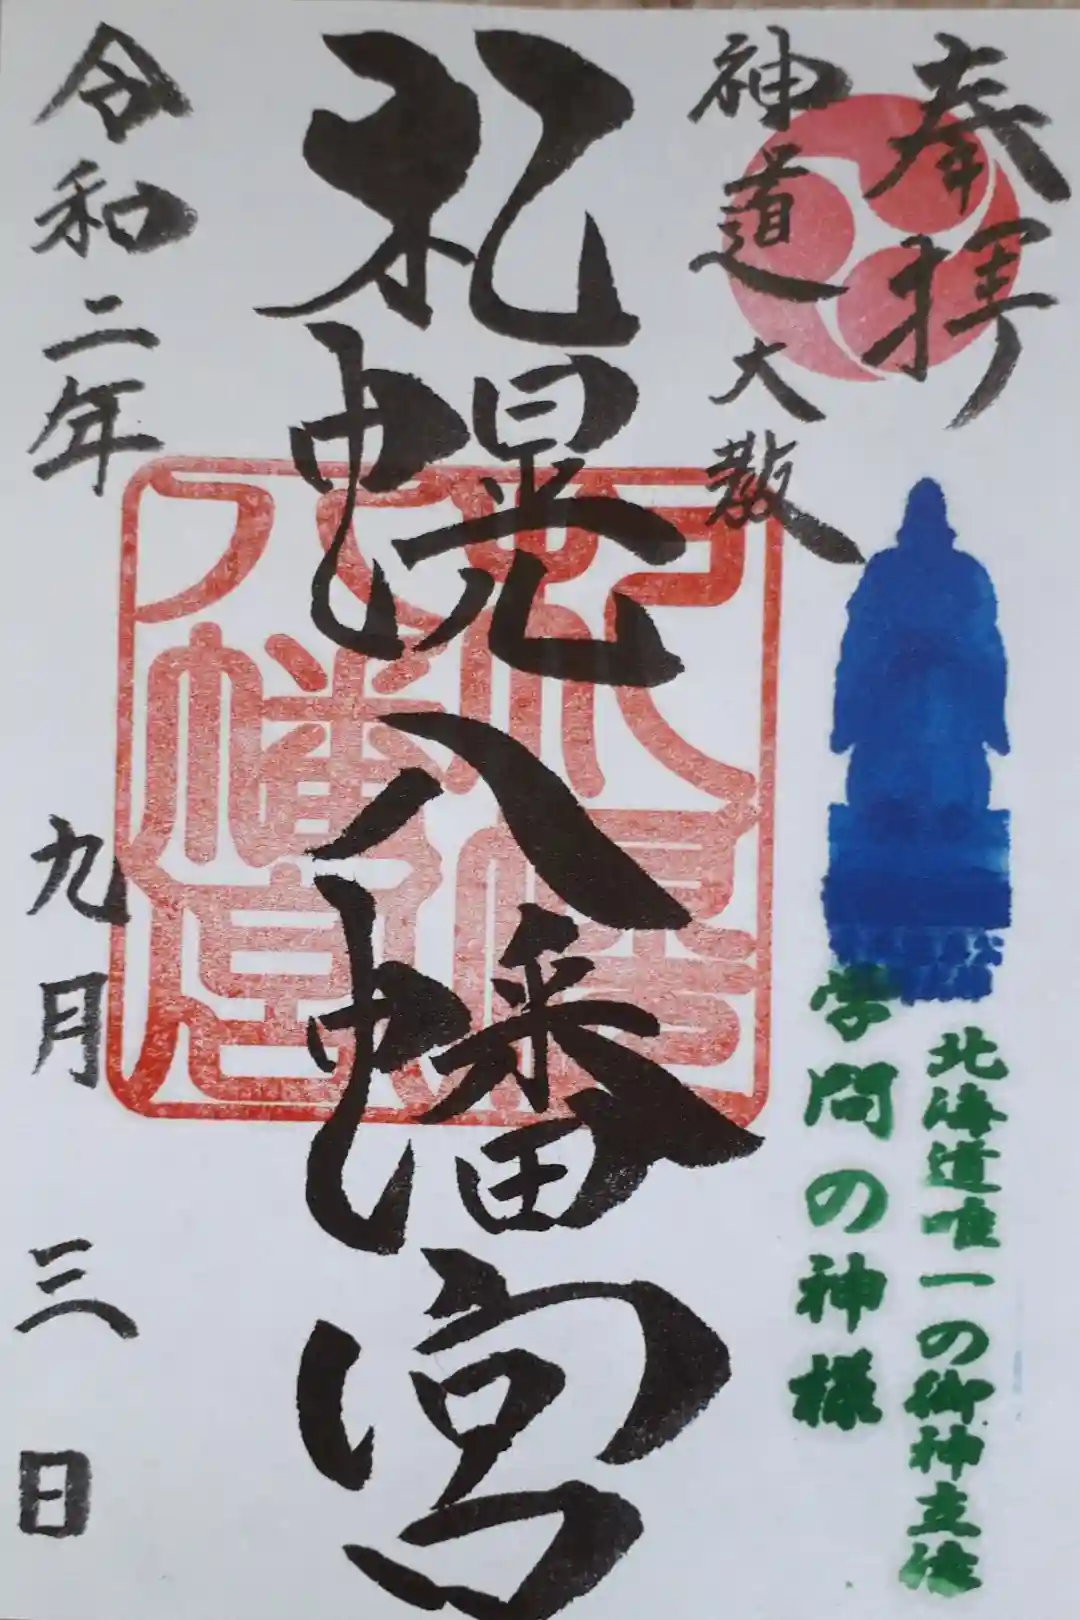 奉拝
神道大教
北海道唯一の御神立像
学問の神様
札幌八幡宮
令和二年
九月
三日